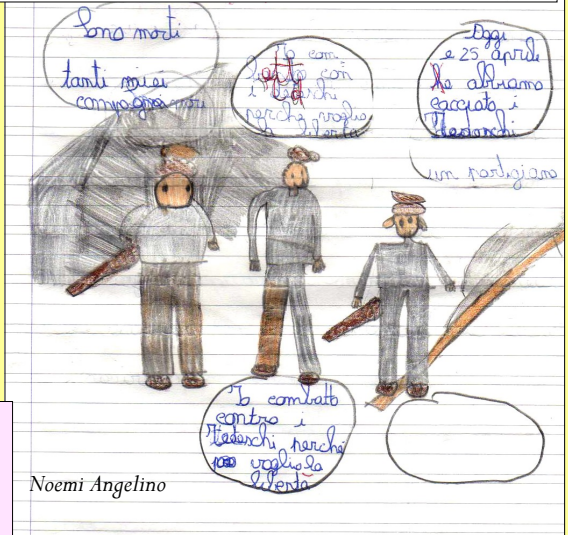 Sono morti
tanti miei
compagni
Io com-
batto con
i tedeschi
perche voglio
la libertà
Oggi
e 25 aprile
abbiamo
cacciato i
Tedeschi
un partigiano
Io combatto
contro i
Tedeschi perchè
voglio la
libertà
Noemi Angelino